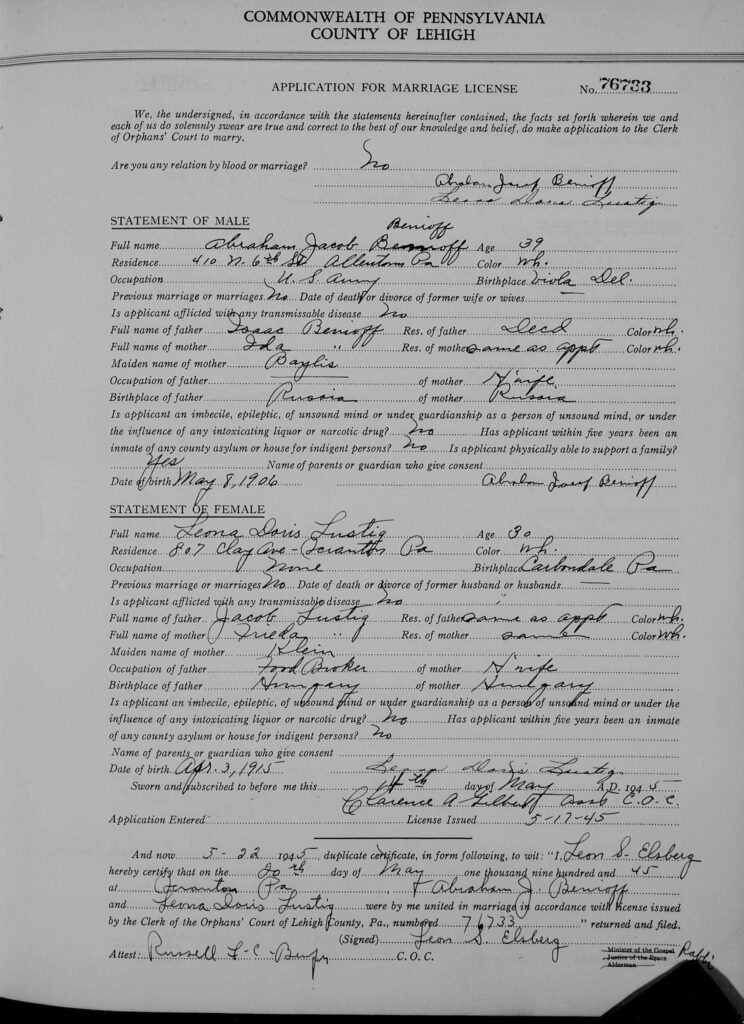 COMMONWEALTH OF PENNSYLVANIA
COUNTY OF LEHIGH
APPLICATION FOR MARRIAGE LICENSE No. 76733
We, the undersigned, in accordance with the statements hereinafter contained, the facts set forth wherein we and
each of us do solemnly swear are true and correct to the best of our knowledge and belief, do make application to the Clerk
of Orphans' Court to marry.
Are you any relation by blood or marriage? No
Abraham Jacob Benioff
Leona Doris Lustig
STATEMENT OF MALE
Benioff
Full name Abraham Jacob Age 39
Residence 410 N. 6th St Allentown Pa Color Wh.
Occupation U.S. Army Birthplace Viola Del.
Previous marriage or marriages No Date of death or divorce of former wife or wives —
Is applicant afflicted with any transmissable disease No
Full name of father Isaac Benioff Res. of father Decd Color Wh.
Full name of mother Ida " Res. of mother same as appt Color Wh.
Maiden name of mother Baylis
Occupation of father — of mother H'wife
Birthplace of father Russia of mother Russia
Is applicant an imbecile, epileptic, of unsound mind or under guardianship as a person of unsound mind, or under
the influence of any intoxicating liquor or narcotic drug? No Has applicant within five years been an
inmate of any county asylum or house for indigent persons? No Is applicant physically able to support a family?
Yes Name of parents or guardian who give consent
Date of birth May 8, 1906 Abraham Jacob Benioff
STATEMENT OF FEMALE
Full name Leona Doris Lustig Age 30
Residence 807 Clay Ave - Scranton Pa Color Wh.
Occupation None Birthplace Carbondale Pa
Previous marriage or marriages No Date of death or divorce of former husband or husbands —
Is applicant afflicted with any transmissable disease No
Full name of father Jacob Lustig Res. of father same as appt Color Wh.
Full name of mother Frieda " Res. of mother same Color Wh.
Maiden name of mother Klein
Occupation of father Food Broker of mother H'wife
Birthplace of father Hungary of mother Hungary
Is applicant an imbecile, epileptic, of unsound mind or under guardianship as a person of unsound mind or under the
influence of any intoxicating liquor or narcotic drug? No Has applicant within five years been an inmate
of any county asylum or house for indigent persons? No
Name of parents or guardian who give consent
Date of birth Apr. 3, 1915 Leona Doris Lustig
Sworn and subscribed to before me this 4th day of May A.D. 1945
Clarence A Gilbert Asst C.O.C.
Application Entered License Issued 5-17-45
And now 5-22 1945, duplicate certificate, in form following, to wit: "I, Leon S. Elsberg
hereby certify that on the 20th day of May one thousand nine hundred and 45
at Scranton Pa, Abraham J. Benioff
and Leona Doris Lustig were by me united in marriage in accordance with license issued
by the Clerk of the Orphans' Court of Lehigh County, Pa., numbered 76733 " returned and filed.
(Signed) Leon S. Elsberg
Minister of the Gospel
Justice of the Peace
Alderman
Rabbi
Attest: Russell C.O.C.